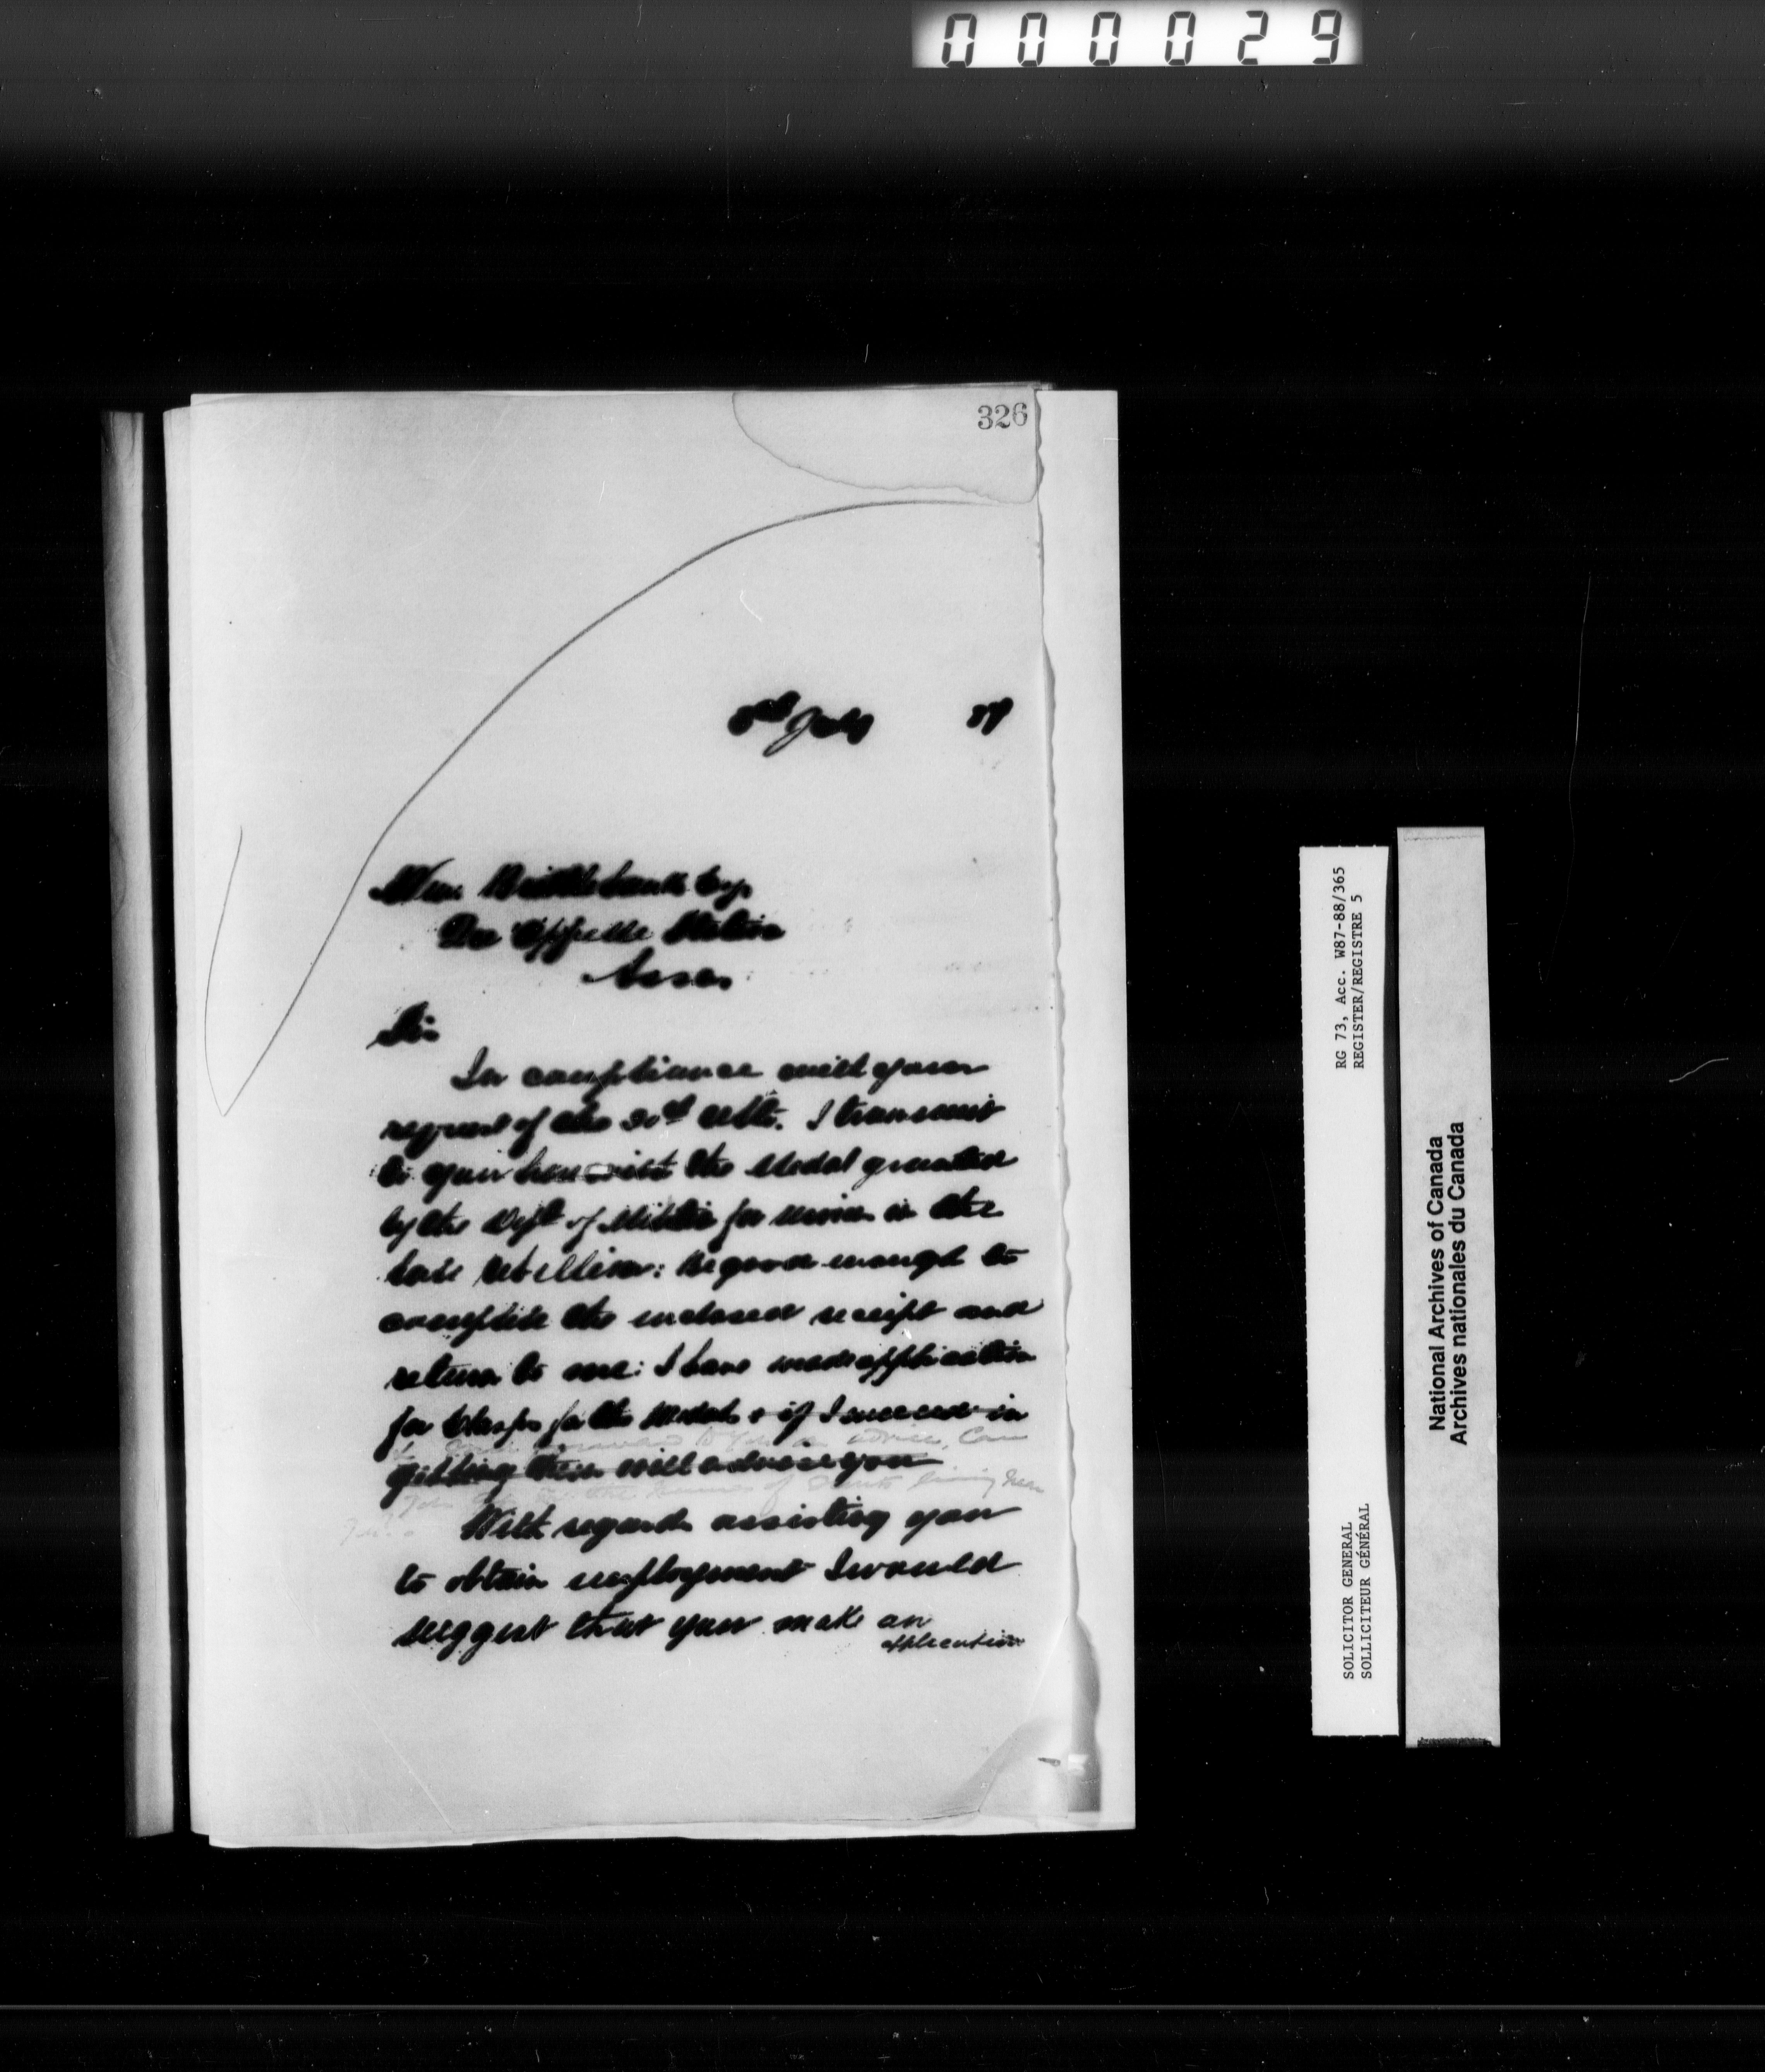 000029
326
July 87
Wm. Esq
Qu'Appelle Station
Assa.
Sir
In compliance with your
request of the 30th Ulto. I transmit
to you herewith the Medal granted
by the Dept of Militia for service in the
late Rebellion: Be good enough to
complete the enclosed receipt and
return to me: I have made application
for Clasps for the Medals & if I succeed in
getting them will advise you
With regards assisting you
to obtain employment I would
suggest that you make an
application
RG 73, Acc. W87-88/365
REGISTER/REGISTRE 5
SOLICITOR GENERAL
SOLLICITEUR GÉNÉRAL
National Archives of Canada
Archives nationales du Canada